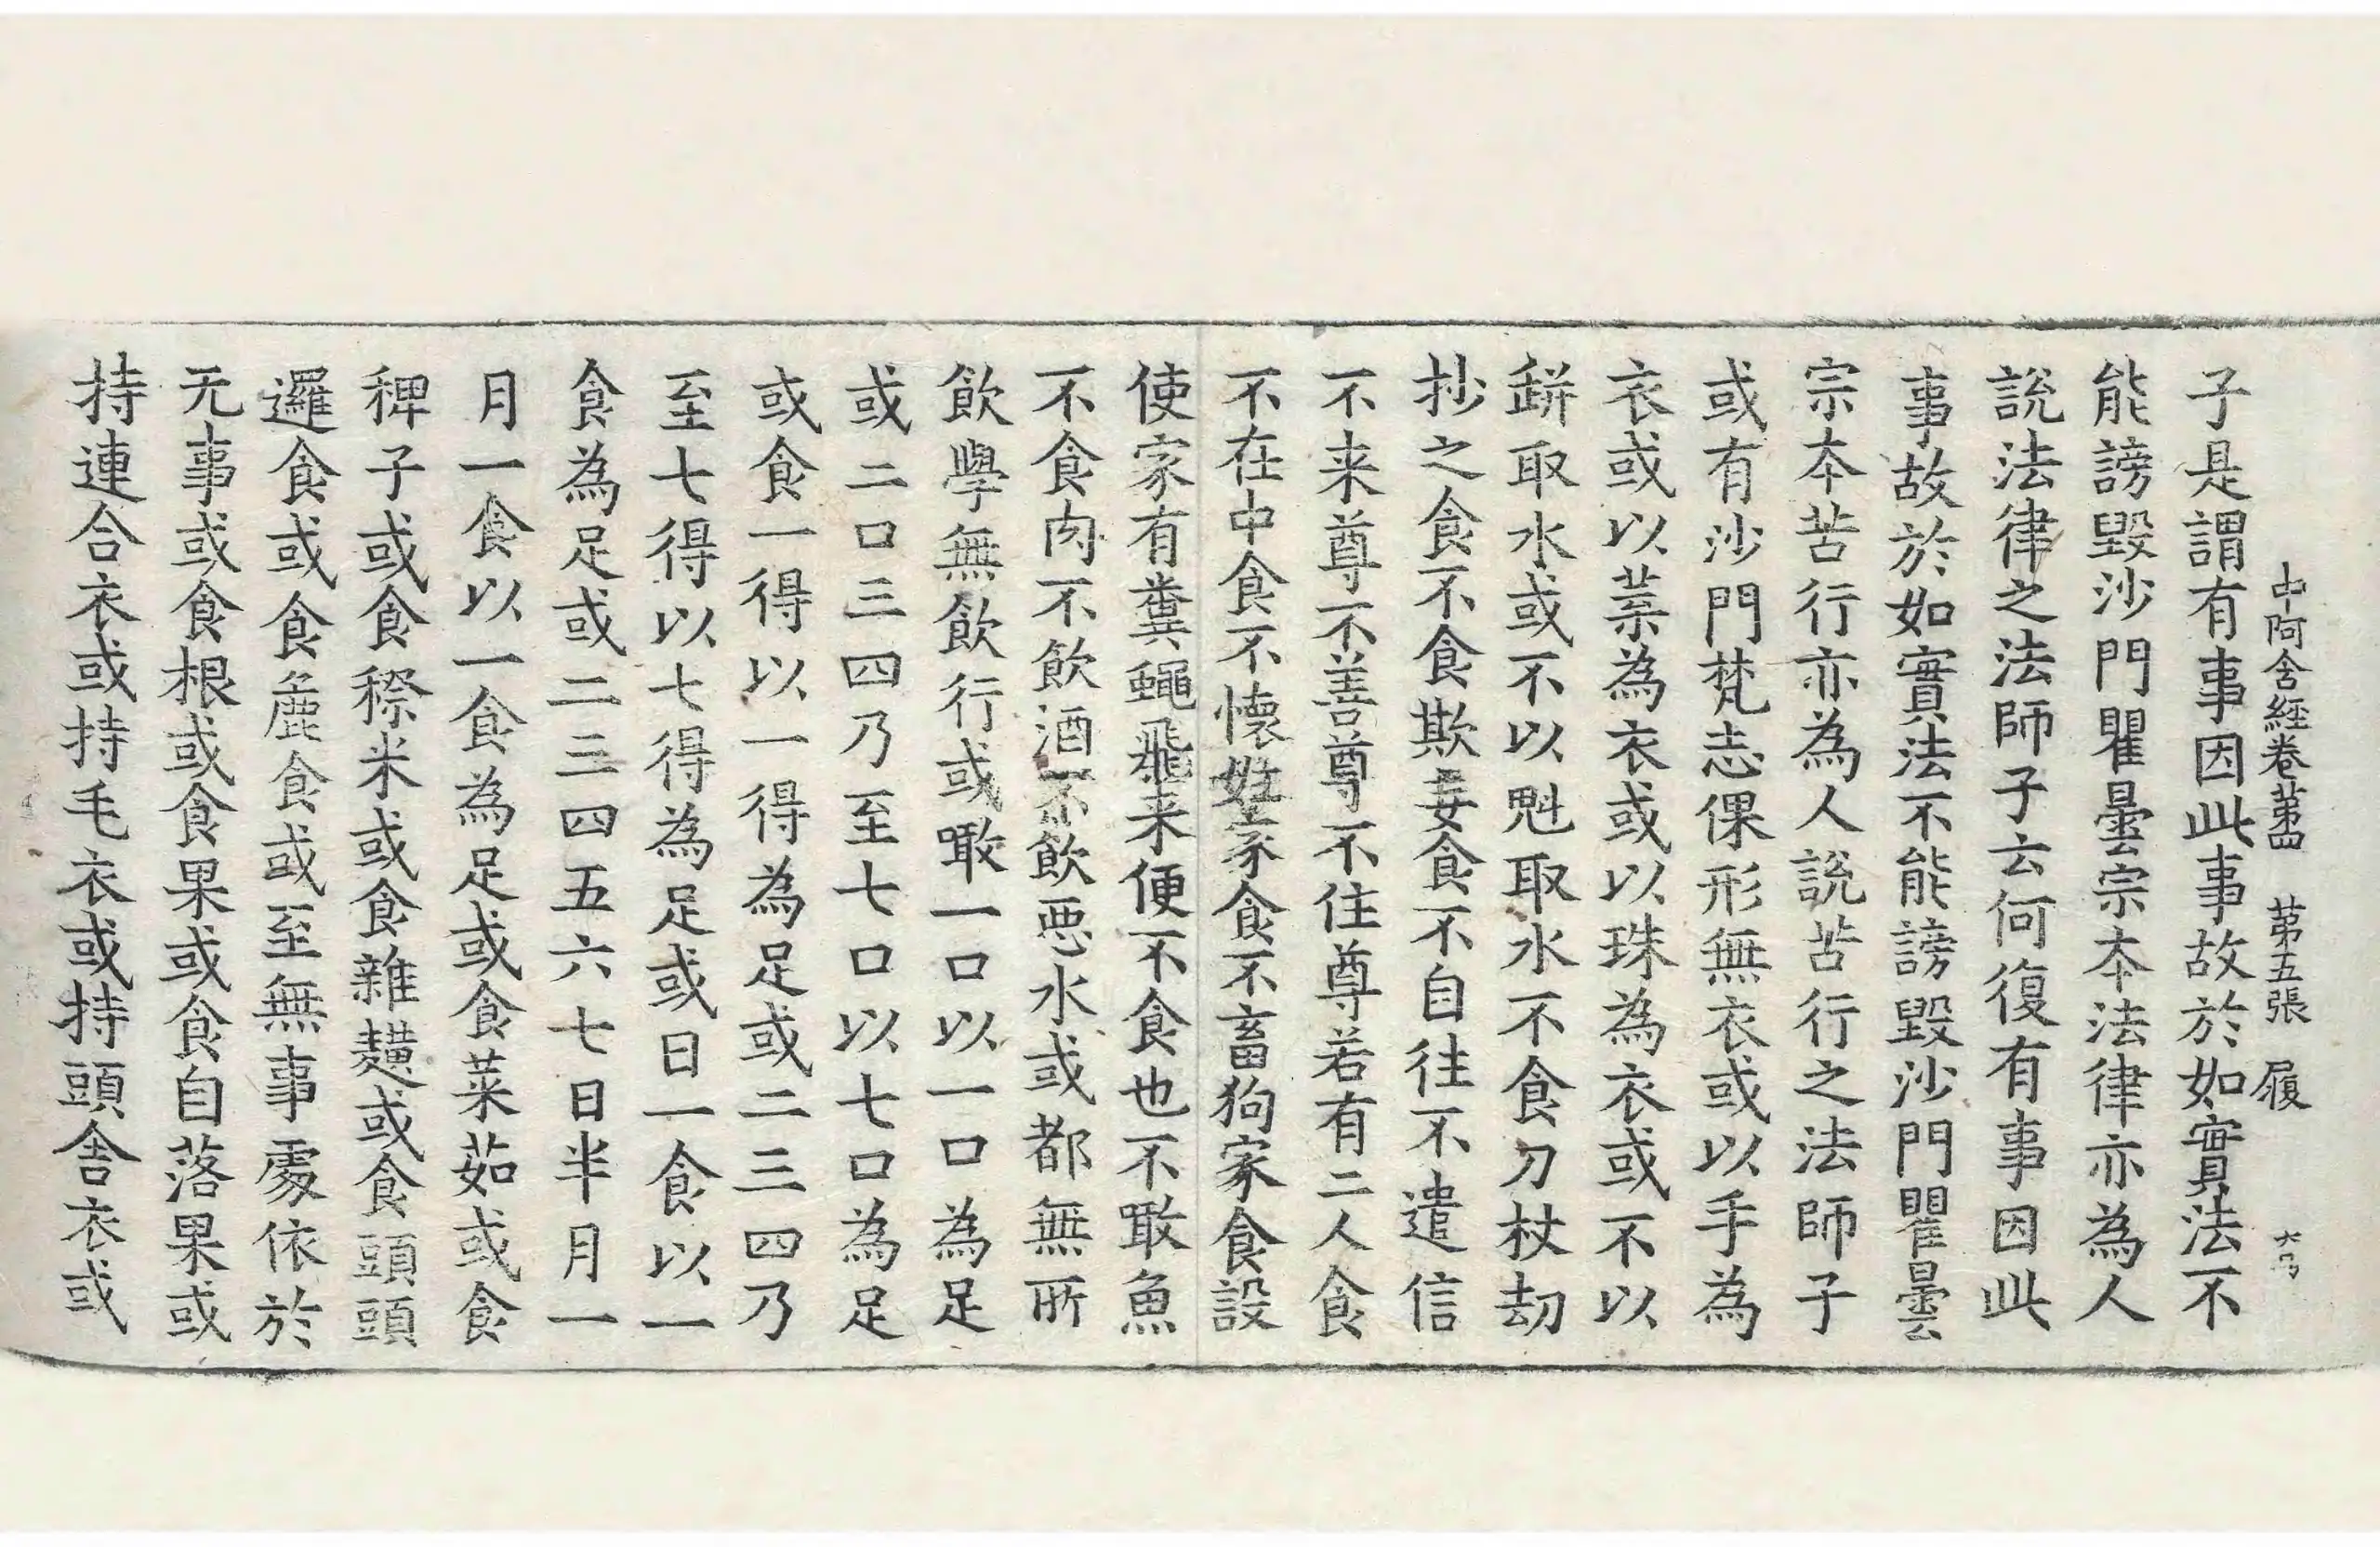 中阿含經卷第四　第五張　履　六弓
子是謂有事因此事故於如實法不
能謗毀沙門瞿曇宗本法律亦為人
說法律之法師子云何復有事因此
事故於如實法不能謗毀沙門瞿曇
宗本苦行亦為人說苦行之法師子
或有沙門梵志倮形無衣或以手為
衣或以葉為衣或以珠為衣或不以
缾取水或不以魁取水不食刀杖劫
抄之食不食欺妄食不自往不遣信
不来尊不善尊不住尊若有二人食
不在中食不懷妊家食不畜狗家食設
使家有糞蠅飛来便不食也不噉魚
不食肉不飲酒不飲惡水或都無所
飲學無飲行或噉一口以一口為足
或二口三四乃至七口以七口為足
或食一得以一得為足或二三四乃
至七得以七得為足或日一食以一
食為足或二三四五六七日半月一
月一食以一食為足或食菜茹或食
稗子或食穄米或食雜䵃或食頭頭
邏食或食麁食或至無事處依於
无事或食根或食果或食自落果或
持連合衣或持毛衣或持頭舍衣或